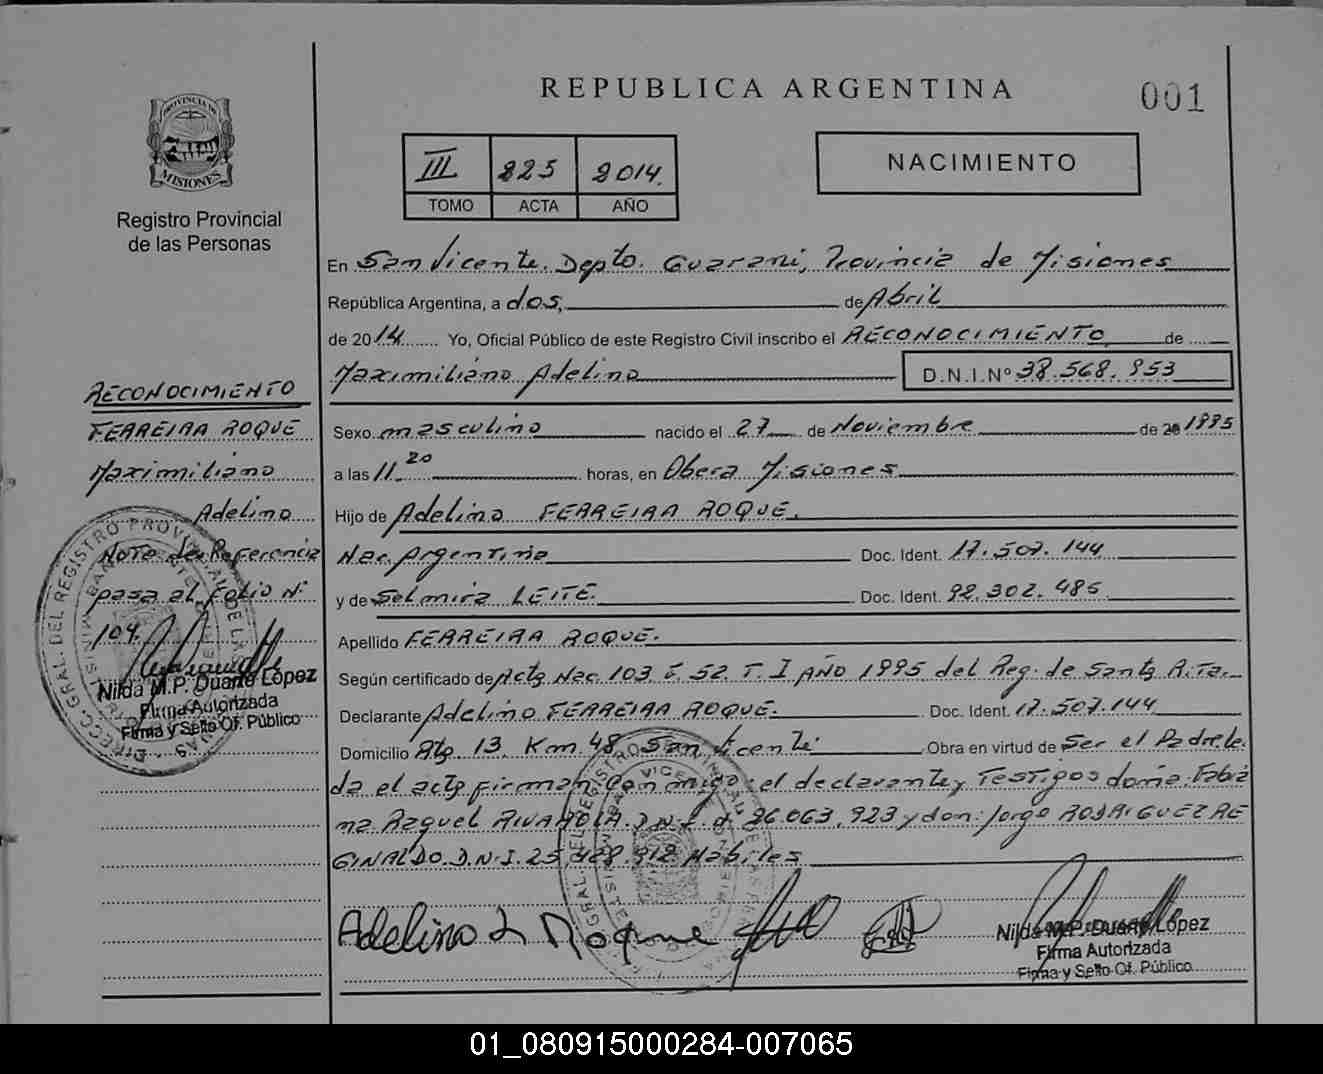 REPUBLICA ARGENTINA
001
PROVINCIA DE
MISIONES
Registro Provincial
de las Personas
III 225 2014.
TOMO ACTA AÑO
NACIMIENTO
En San Vicente. Depto. Guarani, Provincia de Misiones
República Argentina, a dos, de Abril
de 2014 Yo, Oficial Público de este Registro Civil inscribo el RECONOCIMIENTO de
Maximiliano Adelino D.N.I.Nº 38.568.953
RECONOCIMIENTO
FERREIRA ROQUE
Maximiliano
Adelino
Nota de Referencia
pasa al Folio Nº
104.
Nilda M.P. Duarte López
Firma Autorizada
Firma y Sello Of. Público
Sexo masculino nacido el 27 de Noviembre de 20 1995
a las 11.20 horas, en Obera Misiones
Hijo de Adelino FERREIRA ROQUE.
Nac. Argentina Doc. Ident. 17.507.144
y de Selmira LEITE. Doc. Ident. 92.302.485
Apellido FERREIRA ROQUE.
Según certificado de Acta Nac. 103. F. 52. T. I AÑO 1995 del Reg. de Santa Rita.
Declarante Adelino FERREIRA ROQUE. Doc. Ident. 17.507.144
Domicilio Rta. 13. Km. 48. San Vicente Obra en virtud de Ser el Padre. le
da el acta firman conmigo: el declarante y Testigos doña: Fabia
na Raquel RIVAROLA. D.N.I. Nº 26.063.923 y don: Jorge RODRIGUEZ RE
GINALDO. D.N.I. 25.428.912 Habiles
Adelino L Roque
Nilda M.P. Duarte López
Firma Autorizada
Firma y Sello Of. Público
01_080915000284-007065